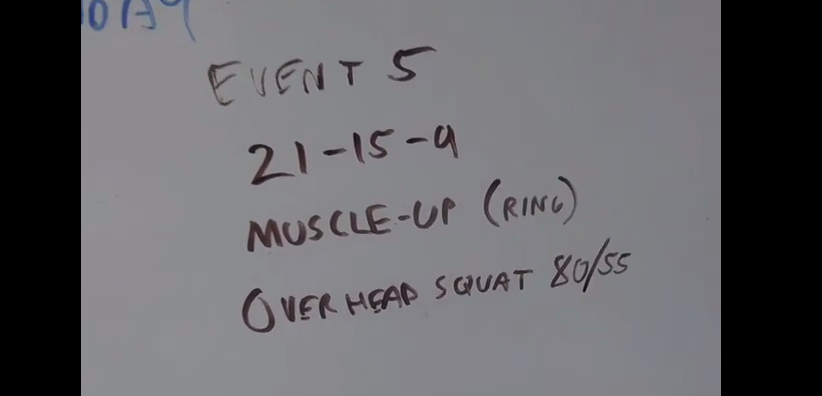 EVENT 5
21-15-9
MUSCLE-UP (RING)
OVERHEAD SQUAT 80/55